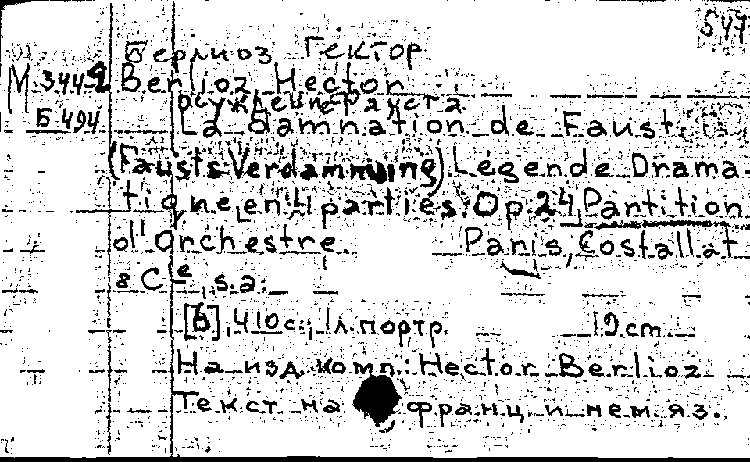 547
Берлиоз Гектор
М 344-2 Berlioz, Hector
осуждение Фауста
Б 494 La damnation de Faust.
(Fausts Verdammung) Légende Drama-
tique en 4 parties. Op. 24, Partition
d'Orchestre. Paris, Costallat
& Cie, s.a.
[6], 410 с., 1 л. портр. 19 cm.
На изд. комп.: Hector Berlioz
Текст на франц. и нем. яз.